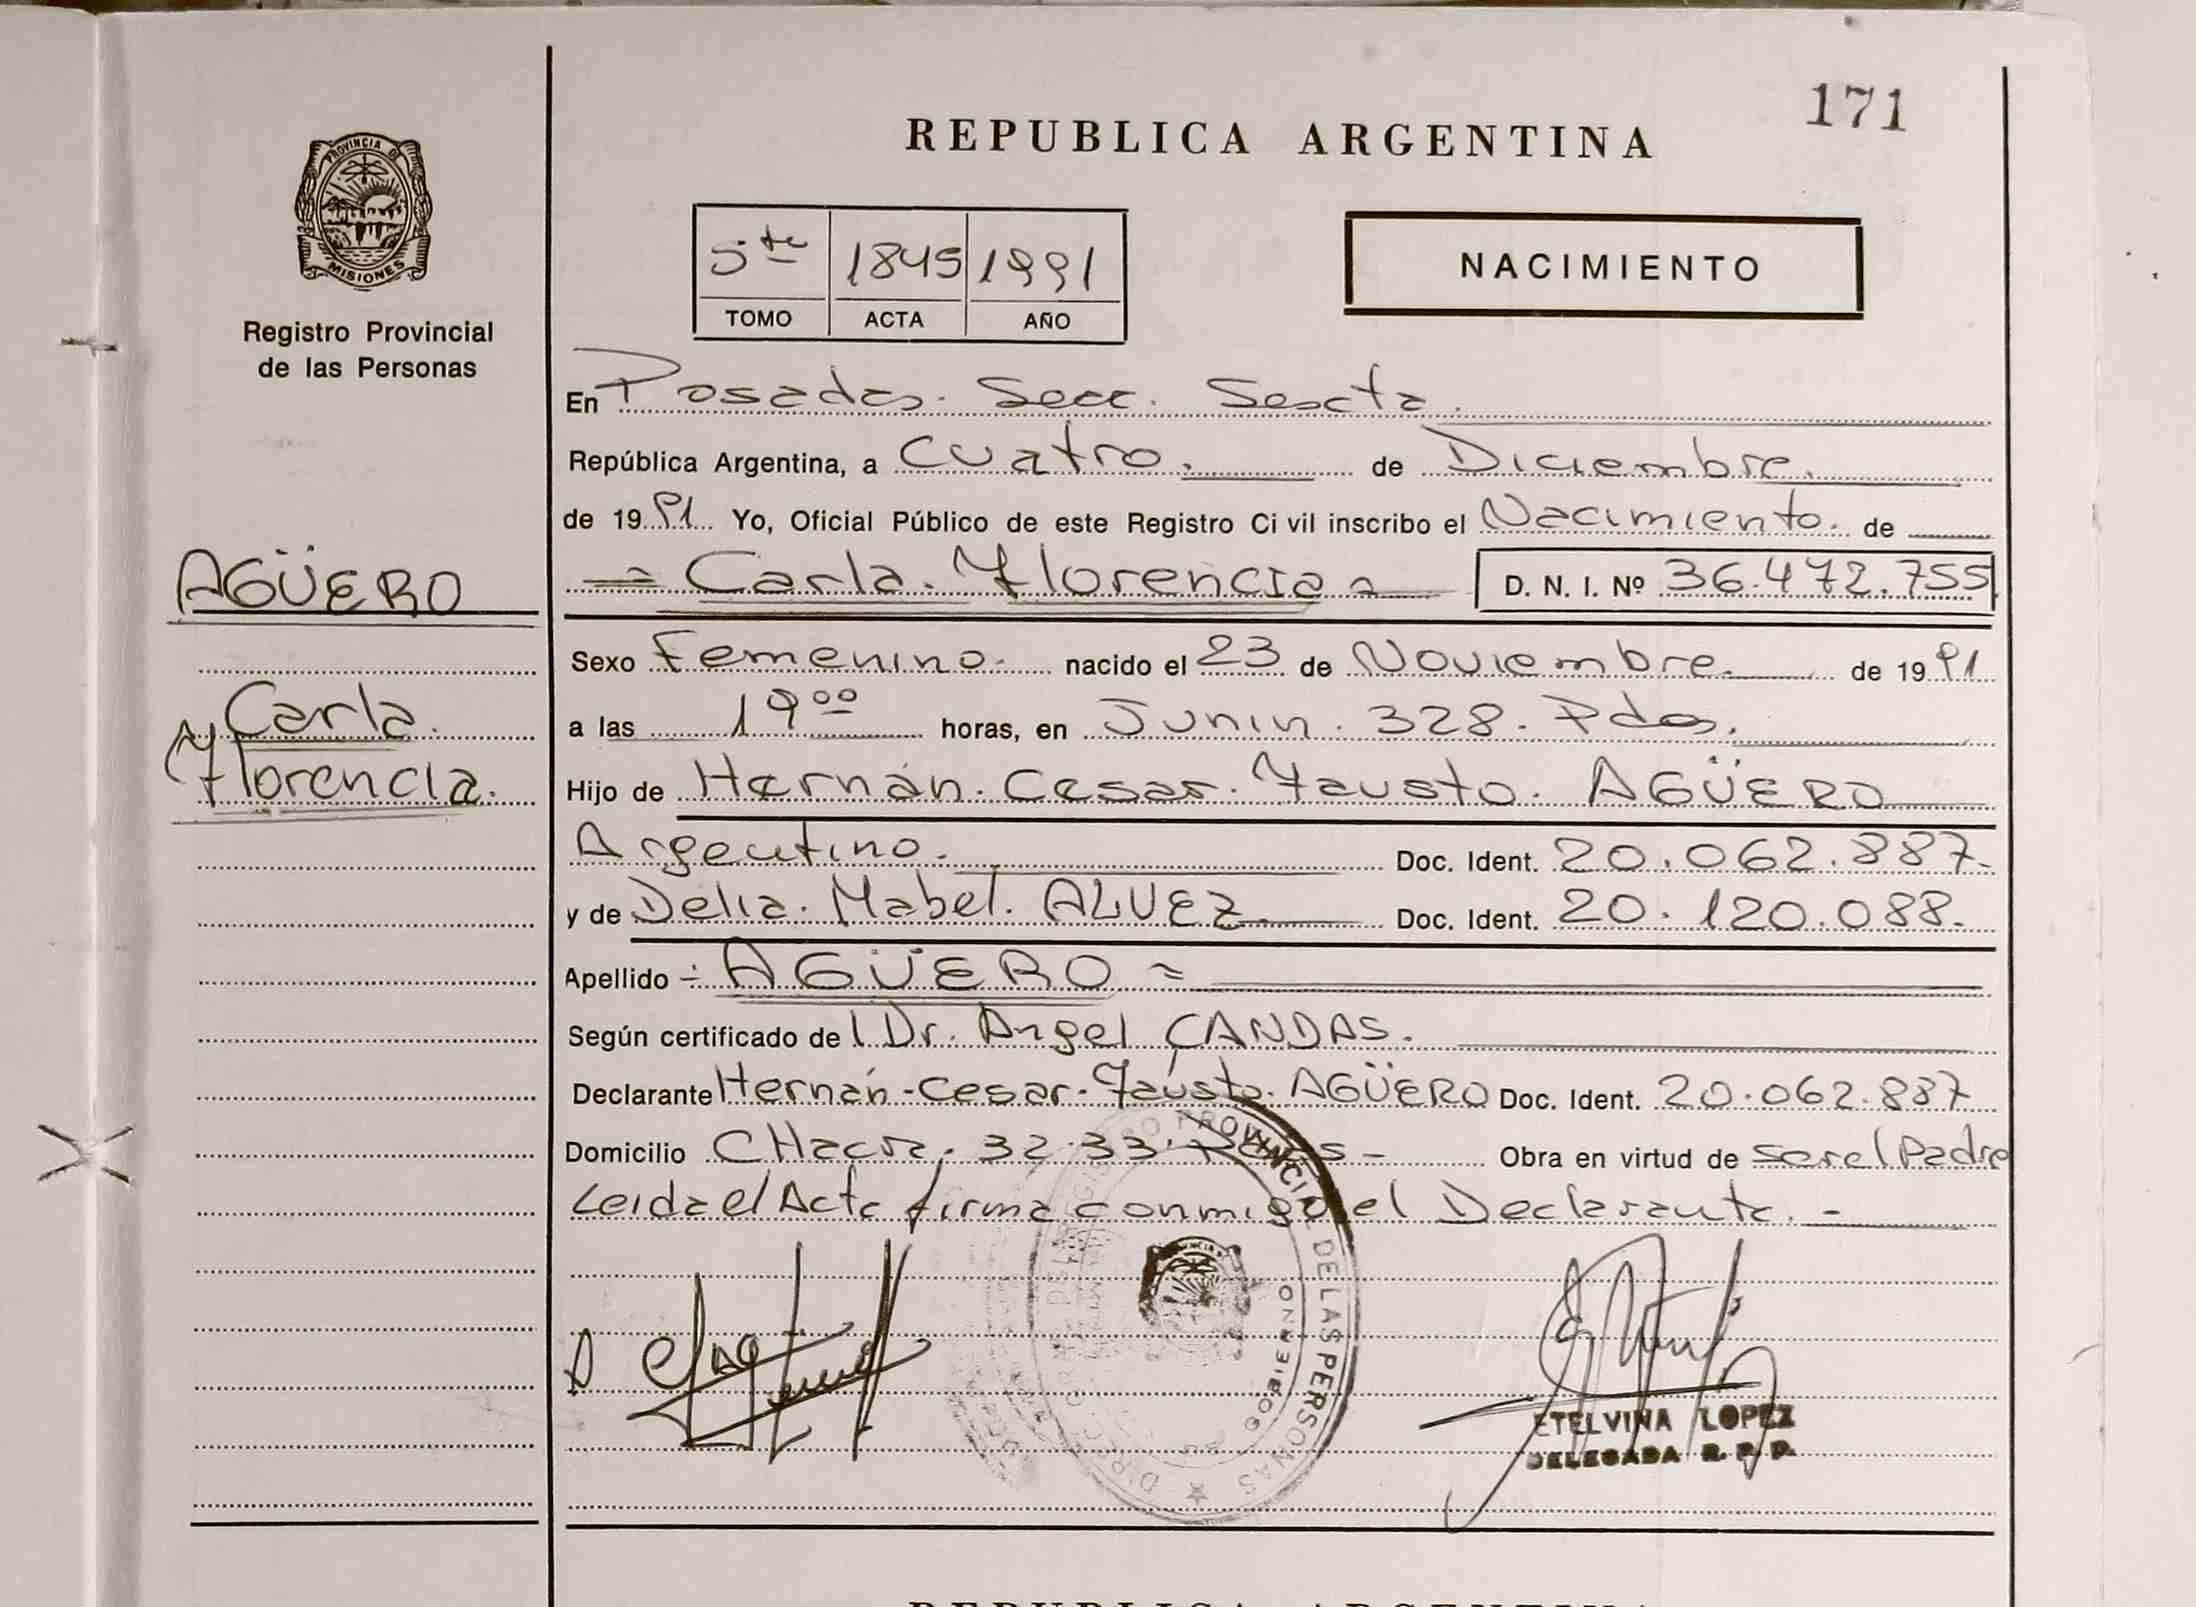 171
REPUBLICA ARGENTINA
PROVINCIA DE
MISIONES
Registro Provincial
de las Personas
5to 1845 1991
TOMO ACTA AÑO
NACIMIENTO
En Posadas. Secc. Sexta.
República Argentina, a Cuatro. de Diciembre.
de 1991 Yo, Oficial Público de este Registro Civil inscribo el Nacimiento. de
Carla. Florencia D. N. I. Nº 36.472.755
AGÜERO
Carla.
Florencia.
Sexo Femenino. nacido el 23 de Noviembre. de 1991
a las 19 00 horas, en Junin. 328. Pdas.
Hijo de Hernán. Cesar. Fausto. AGÜERO
Argentino. Doc. Ident. 20.062.887.
y de Delia. Mabel. ALVEZ Doc. Ident. 20.120.088.
Apellido AGÜERO
Según certificado del Dr. Angel CANDAS.
Declarante Hernán-Cesar-Fausto. AGÜERO Doc. Ident. 20.062.887
Domicilio CHacra. 32.33. Obra en virtud de ser el Padre
Leida el Acta firma conmigo el Declarante.-
PROVINCIAL DE LAS PERSONAS
GOBIERNO
ETELVINA LOPEZ
DELEGADA R. P. P.
REPUBLICA ARGENTINA